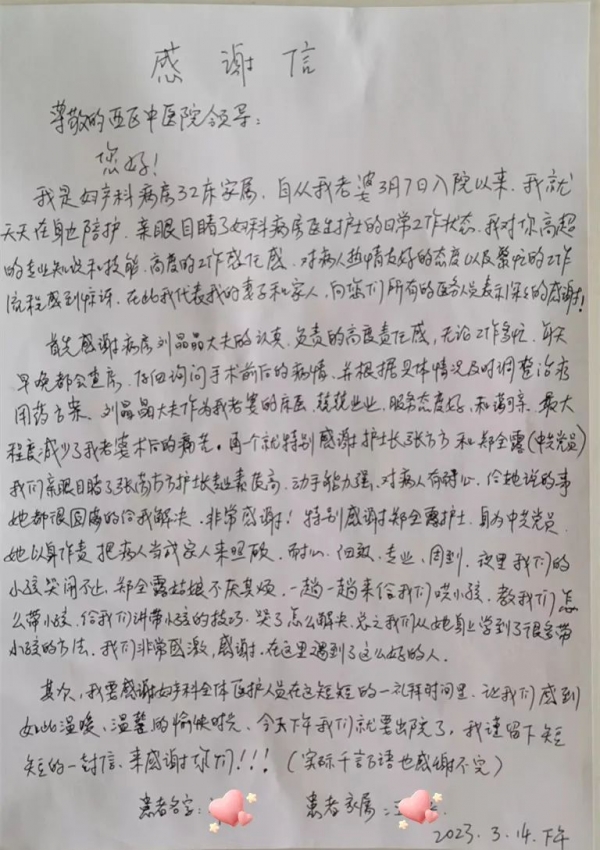 感谢信
尊敬的西区中医院领导:
您好!
我是妇产科病房32床家属,自从我老婆3月7日入院以来,我就
天天在身边陪护,亲眼目睹了妇科病房医生护士的日常工作状态,我对你高超
的专业知识和技能,高度的工作感任感,对病人热情友好的态度以及繁忙的工作
流程感到惊讶,在此我代表我的妻子和家人,向您们所有的医务人员表示深深的感谢!
首先感谢病房刘晶晶大夫的认真,负责的高度责任感,无论工作多忙,每天
早晚都会查房,仔细询问手术前后的病情,并根据具体情况及时调整治疗
用药方案。刘晶晶大夫作为我老婆的床医,兢兢业业,服务态度好,和蔼可亲,最大
程度减少了我老婆术后的痛苦。再个就特别感谢护士长张方方和郑全露(中共党员)
我们亲眼目睹了张方方护士长专业素质高,动手能力强,对病人有耐心,给她说的事
她都很圆满的给我解决,非常感谢!特别感谢郑全露护士,身为中共党员,
她以身作责,把病人当成家人来照顾,耐心,细致,专业,周到,夜里我们的
小孩哭闹不止,郑全露姑娘不厌其烦,一趟一趟来给我们哄小孩,教我们怎
么带小孩,给我们讲带小孩的技巧,哭了怎么解决,总之我们从她身上学到了很多带
小孩的方法,我们非常感激,感谢,在这里遇到了这么好的人。
其次,我要感谢妇产科全体医护人员在这短短的一礼拜时间里,让我们感到
如此温暖、温馨的愉快时光,今天下午我们就要出院了,我谨留下短
短的一封信,来感谢你们!!!(实际千言万语也感谢不完)
患者名字: 患者家属:王
2023.3.14.下午